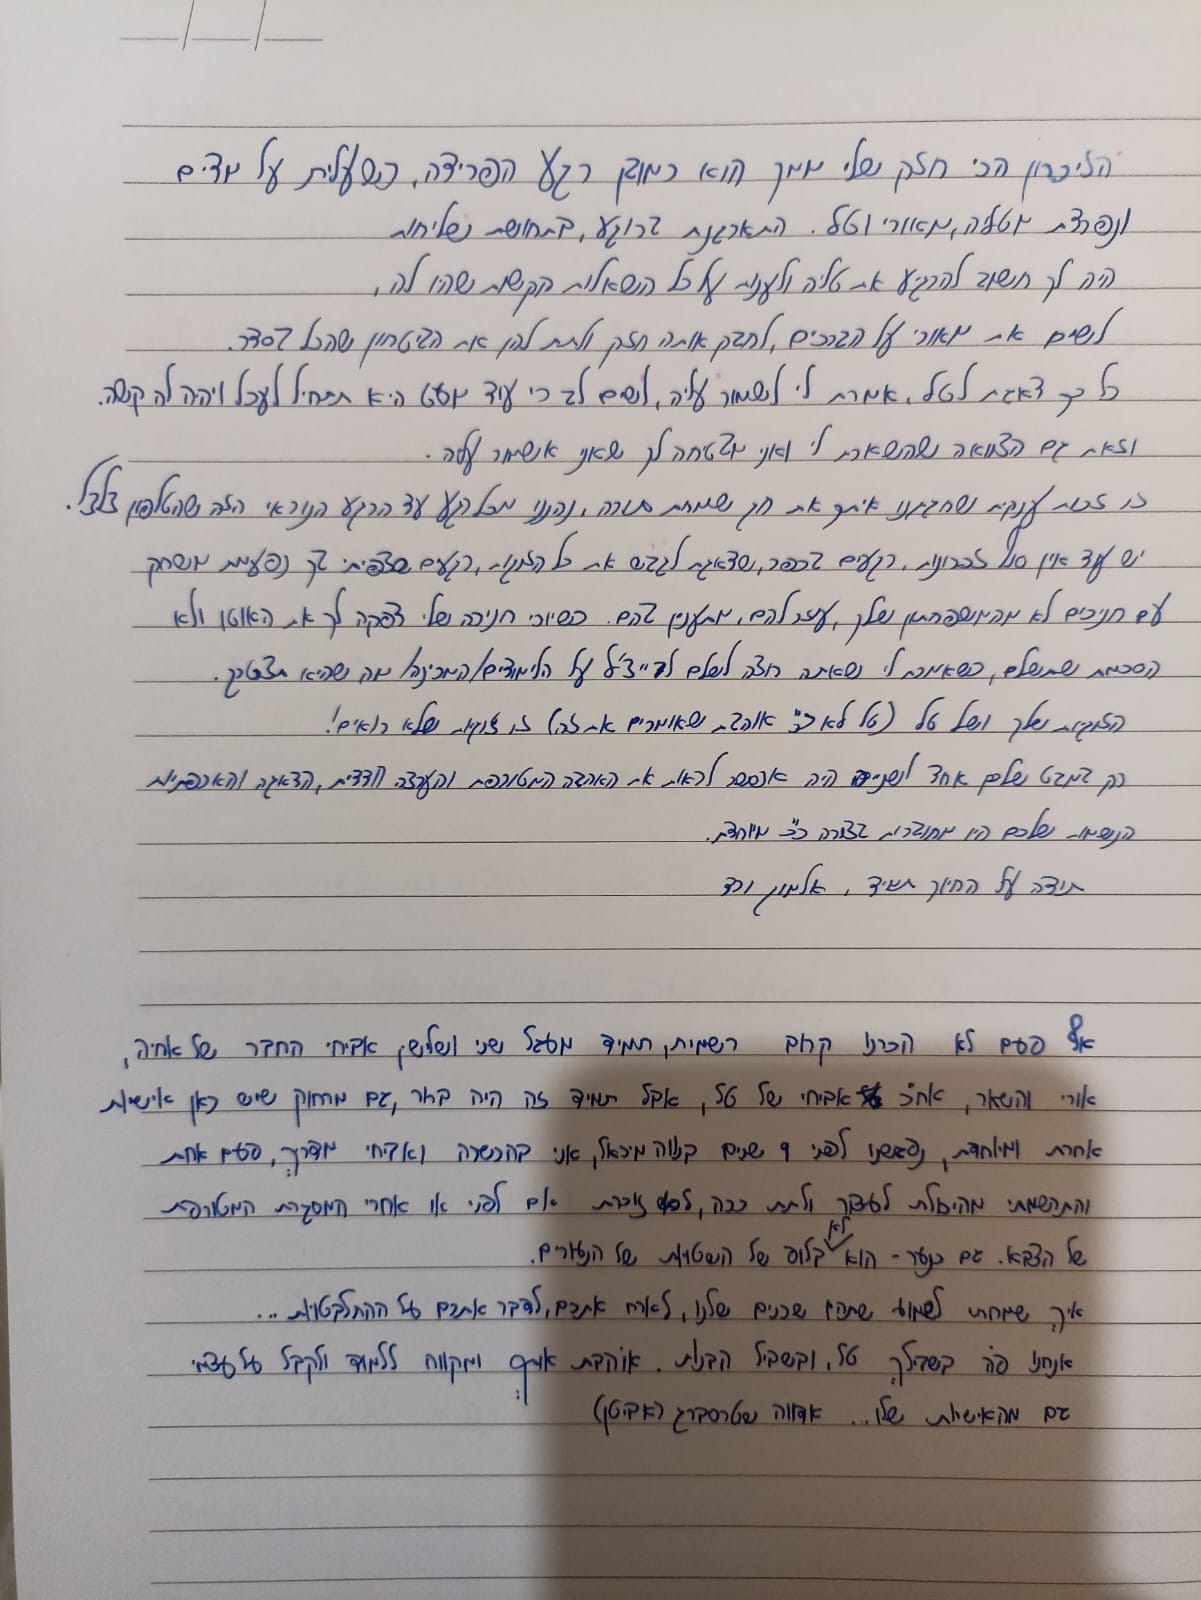 הזיכרון הכי חזק שלי ממך הוא כמובן רגע הפרידה, כשעלית על מדים
ונפרדת מטליה, מאורי וטל. התארגנת ברוגע, בתחושת שליחות
היה לך חשוב להרגיע את טליה ולענות על כל השאלות הקשות שהיו לה,
לשים את מאורי על הברכיים, לחבק אותה חזק ולתת להן את הביטחון שהכל בסדר.
כל כך דאגת לטל, אמרת לי לשמור עליה, לשים לב כי עוד מעט היא תתחיל לעכל ויהיה לה קשה.
וזאת גם הצוואה שהשארת לי ואני מבטיחה לך שאני אשמור עליה.
זו זכות ענקית שחגגנו איתך את חג שמחת תורה, נהננו מכל רגע עד הרגע הנוראי הזה שהטלפון צלצל.
יש עוד אין סוף זכרונות, רגעים בכפר, שדאגת לגבש את כל הצוות, רגעים שצפיתי בך נפעמת משחק
עם חניכים לא מהמשפחתון שלך, עוזר להם, מתעניין בהם. כשיורי חניכה שלי דפקה לך את האוטו ולא
הסכמת שתשלם, כשאמרת לי שאתה רוצה לשלם לה על הלימודים/המכינה/ מה שהיא תצטרך.
הזוגיות שלך ושל טל (טל לא כ"כ אוהבת שאומרים את זה) זו זוגיות שלא רואים!
רק במבט שלם אחד לשניה היה אפשר לראות את האהבה המטורפת והערצה הדדית, הדאגה והאכפתיות
הנשמות שלכם היו מחוברות בצורה כ"כ מיוחדת.
תודה על החיוך תמיד, אלמוג ורד
אף פעם לא הכרנו קרוב רשמית, תמיד מעגל שני ושלישי, אביחי החבר של אחיה,
אורי והשאר, אח"כ אביחי של טל, אבל תמיד זה היה ברור, גם מרחוק שיש כאן אישיות
אחרת ומיוחדת, נפגשנו לפני 9 שנים בנווה מיכאל, אני בהכשרה ואביחי מדריך, פעם אחת
והתרשמתי מהיכולת לעצור ולתת ככה, זוכרת אם לפני או אחרי המסגרת המטורפת
של הצבא. גם כנער - הוא לא בלוף של השטויות של הנעורים.
איך שמחתי לשמוע שתהיו שכנים שלנו, לארח אתכם, לדבר אתכם על ההתלבטויות ...
אנחנו פה בשבילך טל, ובשביל הבנות. אוהבת אותך ומקווה ללמוד ולקבל על עצמי
גם מהאישיות שלו... אדווה שטרסברג (אביטן)